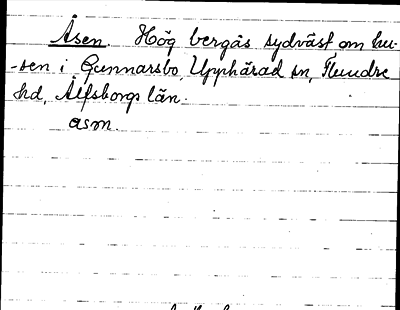 Åsen. Hög bergås sydväst om hu-
-sen i Gunnarsbo, Upphärad sn, Flundre
hd, Älfsborgs län.
åsm.